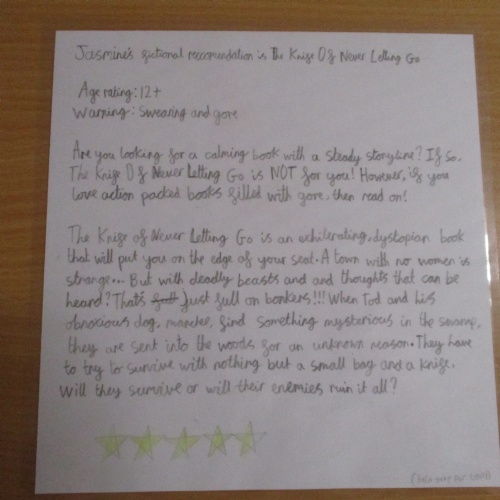 Jasmine's fictional reccomendation is The Knife Of Never Letting Go
Age rating: 12+
Warning: Swearing and gore
Are you looking for a calming book with a steady storyline? If so,
The Knife Of Never Letting Go is NOT for you! However, if you
love action packed books filled with gore, then read on!
The Knife of Never Letting Go is an exhilerating, dystopian book
that will put you on the edge of your seat. A town with no women is
strange... But with deadly beasts and and thoughts that can be
heard? That's just full on bonkers!!! When Tod and his
obnoxious dog, manchee, find something mysterious in the swamp,
they are sent into the woods for an unknown reason. They have
to try to survive with nothing but a small bag and a knife.
Will they survive or will their enemies ruin it all?